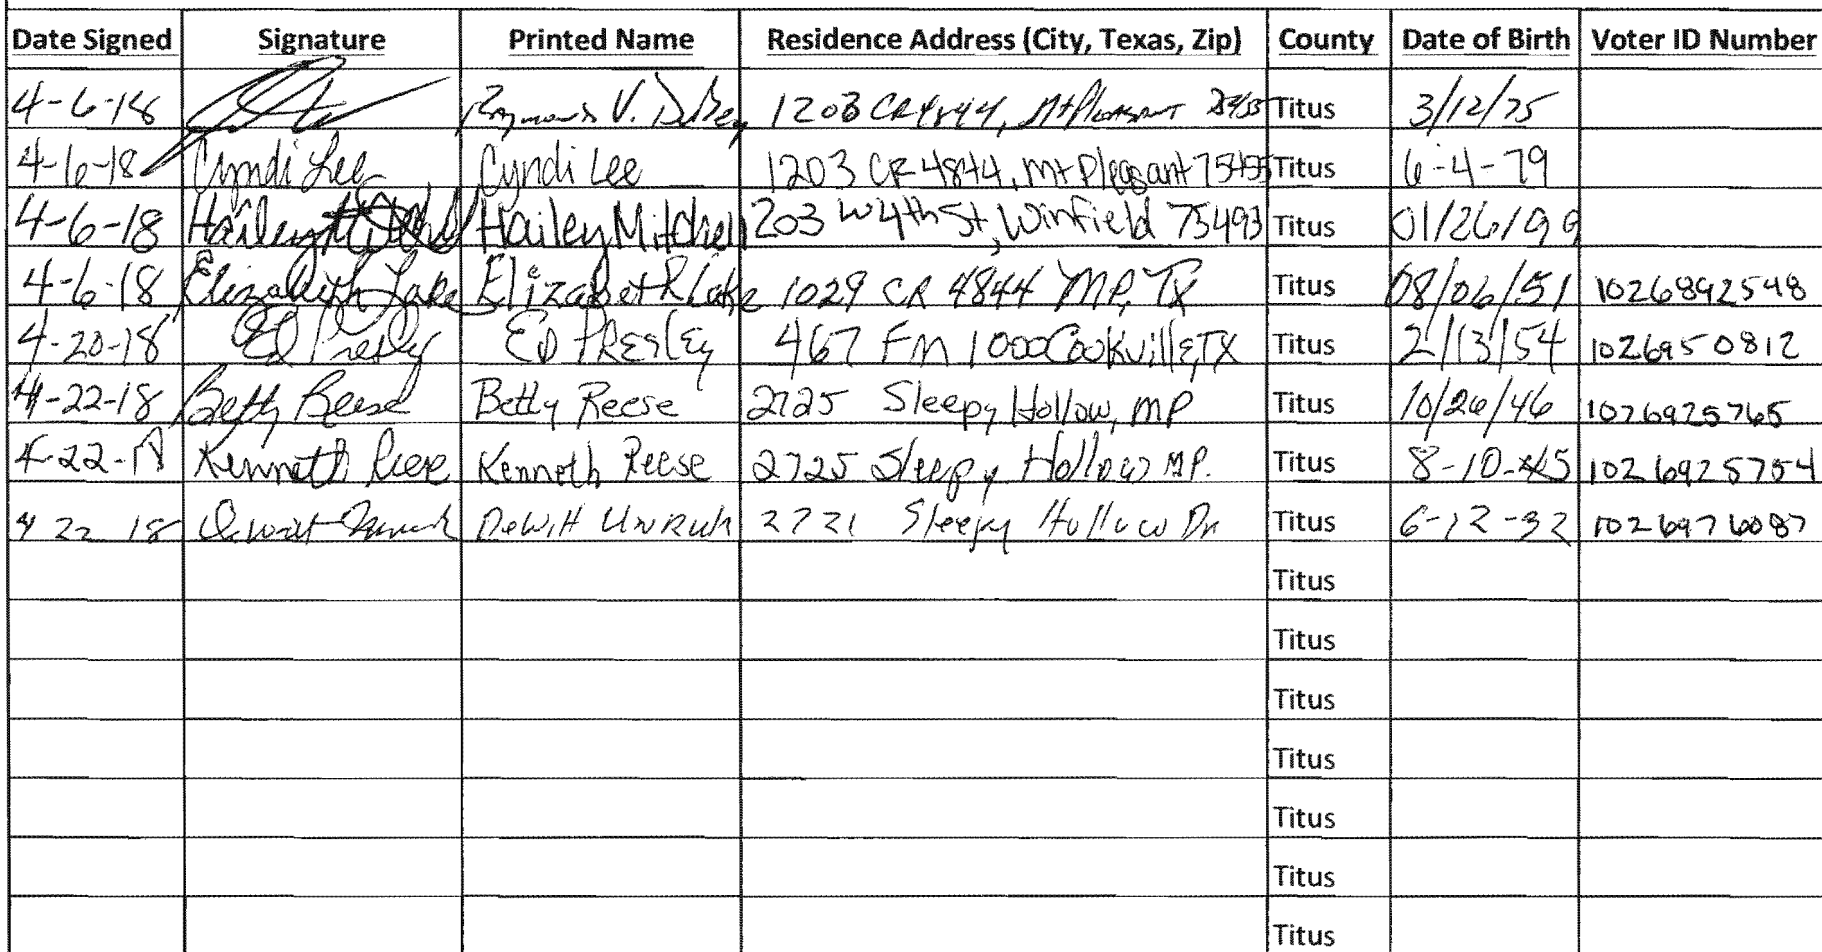 Date Signed Signature Printed Name Residence Address (City, Texas, Zip) County Date of Birth Voter ID Number
4-6-18 V. 1203 CR 4844, Mt Pleasant Titus 3/12/75
4-6-18 Cyndi Lee Cyndi Lee 1203 CR 4844, Mt Pleasant 75455 Titus 6-4-79
4-6-18 Hailey Mitchell Hailey Mitchell 203 W 4th St, Winfield 75493 Titus 01/26/99
4-6-18 Elizabeth Lake Elizabeth Lake 1029 CR 4844 MP, TX Titus 08/06/51 1026892548
4-20-18 Ed Presley Ed Presley 467 FM 1000 Cookville, TX Titus 2/13/54 1026950812
4-22-18 Betty Reese Betty Reese 2725 Sleepy Hollow, MP Titus 10/26/46 1026925765
4-22-18 Kenneth Reese Kenneth Reese 2725 Sleepy Hollow MP. Titus 8-10-45 1026925754
4 22 18 Dewitt Unruh DeWitt Unruh 2721 Sleepy Hollow Dr Titus 6-12-32 1026976087
Titus
Titus
Titus
Titus
Titus
Titus
Titus